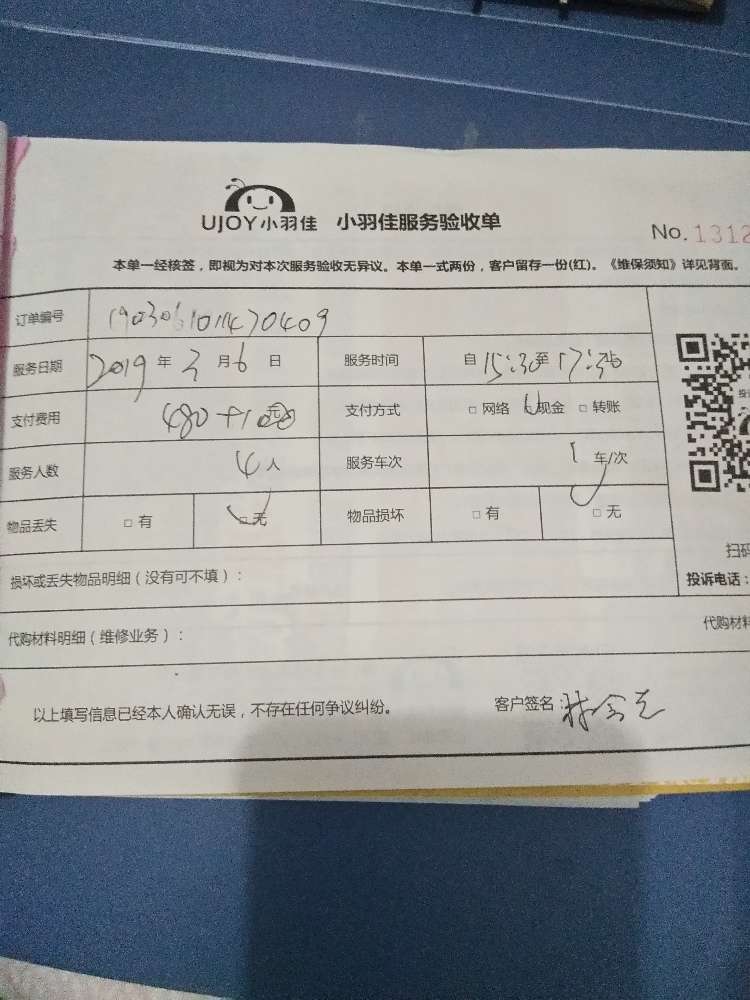 UJOY小羽佳 小羽佳服务验收单
No.1312
本单一经核签，即视为对本次服务验收无异议。本单一式两份，客户留存一份(红)。《维保须知》详见背面。
订单编号
服务日期 2019 年 3 月 6 日 服务时间 自 15:30 至 17:35
支付费用 480+100元 支付方式 □ 网络 现金 □ 转账
服务人数 4 人 服务车次 1 车/次
物品丢失 □ 有 □ 无 物品损坏 □ 有 □ 无
扫码
损坏或丢失物品明细（没有可不填）：
投诉电话：
代购材料明细（维修业务）：
代购材料
以上填写信息已经本人确认无误，不存在任何争议纠纷。 客户签名：